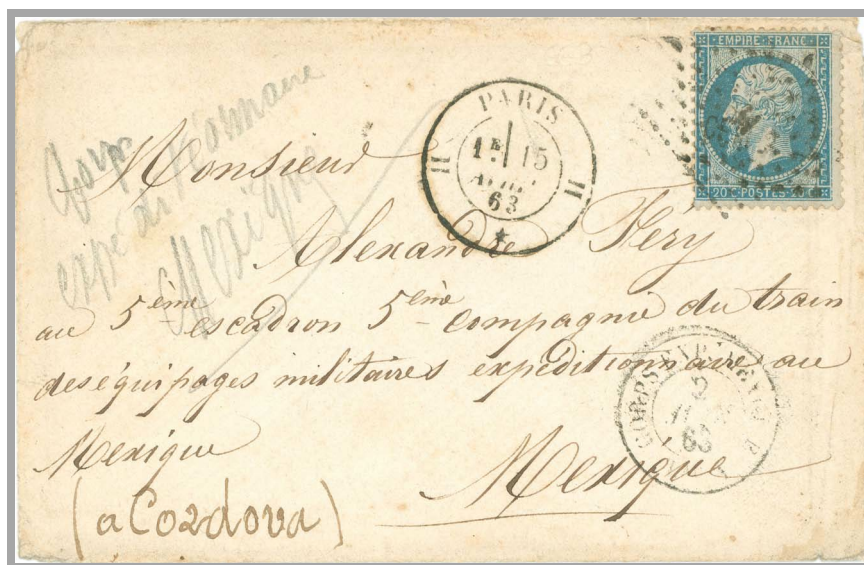 EMPIRE FRANC
20 C POSTES 20 C
PARIS
1E 15
AVRIL
63
11 11
Corps
expéditionnaire
Mexique
Monsieur
Alexandre Féry
au 5ème escadron 5ème compagnie du train
des équipages militaires expéditionnaire au
Mexique
Mexique
(a Cordova)
CORPS EXP. MEXIQUE
2
63